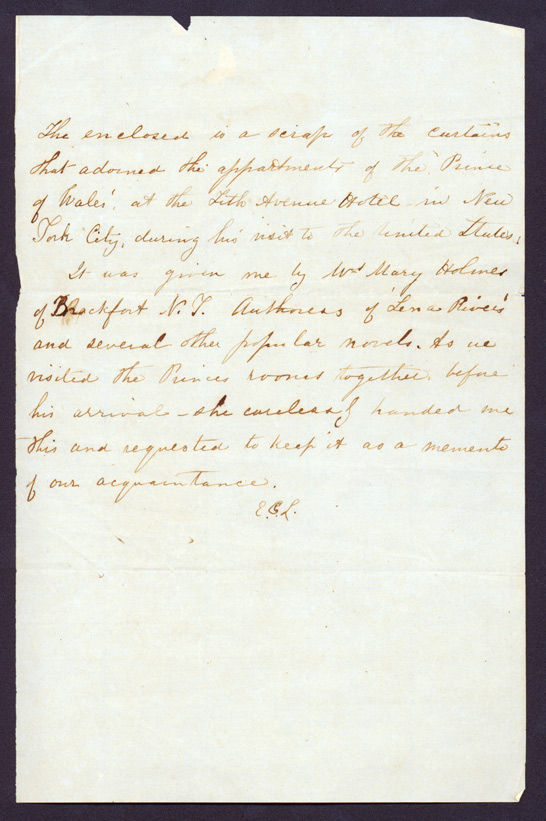 The enclosed is a scrap of the curtains
that adorned the appartments of the Prince
of Wales' at the 5th Avenue Hotel in New
York City, during his visit to the United States.
It was given me by Mrs Mary Holmes
of Brockfort N.Y. Authoress of "Lena Rivers"
and several other popular novels. As we
visited the Princes rooms together before
his arrival - she carelessly handed me
this and requested to keep it as a memento
of our acquaintance.
E.C.L.